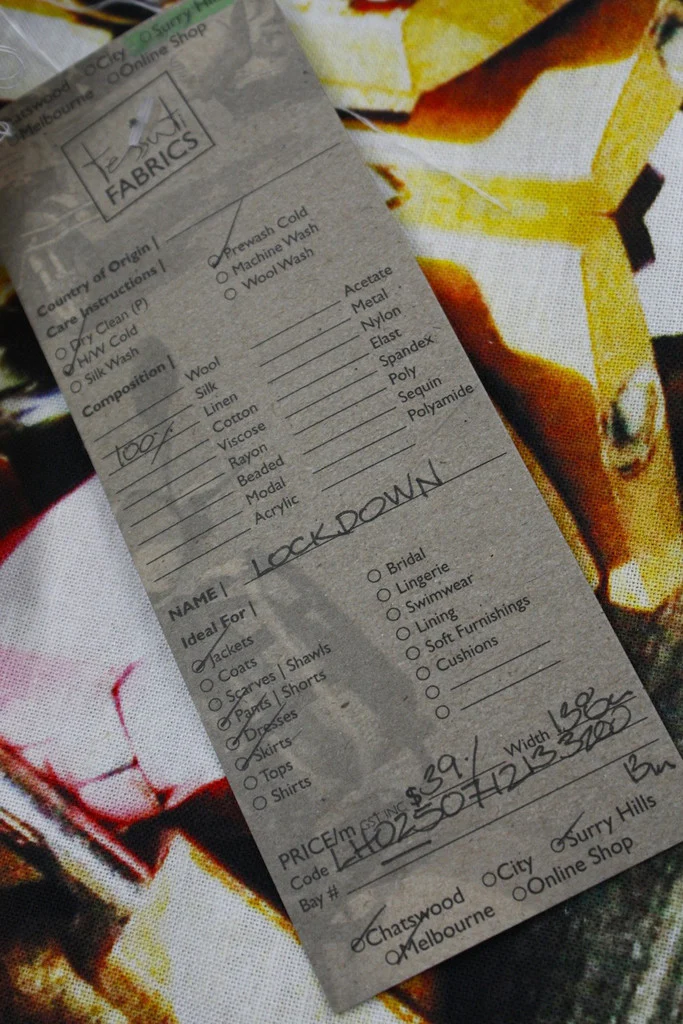 Chatswood City Surry Hills
Melbourne Online Shop
Tessuti
FABRICS
Country of Origin |
Care Instructions |
Dry Clean (P) Prewash Cold
H/W Cold Machine Wash
Silk Wash Wool Wash
Composition |
Wool Acetate
Silk Metal
100% Linen Nylon
Cotton Elast
Viscose Spandex
Rayon Poly
Beaded Sequin
Modal Polyamide
Acrylic
NAME | LOCKDOWN
Ideal For |
Jackets Bridal
Coats Lingerie
Scarves | Shawls Swimwear
Pants | Shorts Lining
Dresses Soft Furnishings
Skirts Cushions
Tops
Shirts
PRICE/m GST INC $39·/ Width 138cm
Code
Bay # 13m
Chatswood City Surry Hills
Melbourne Online Shop